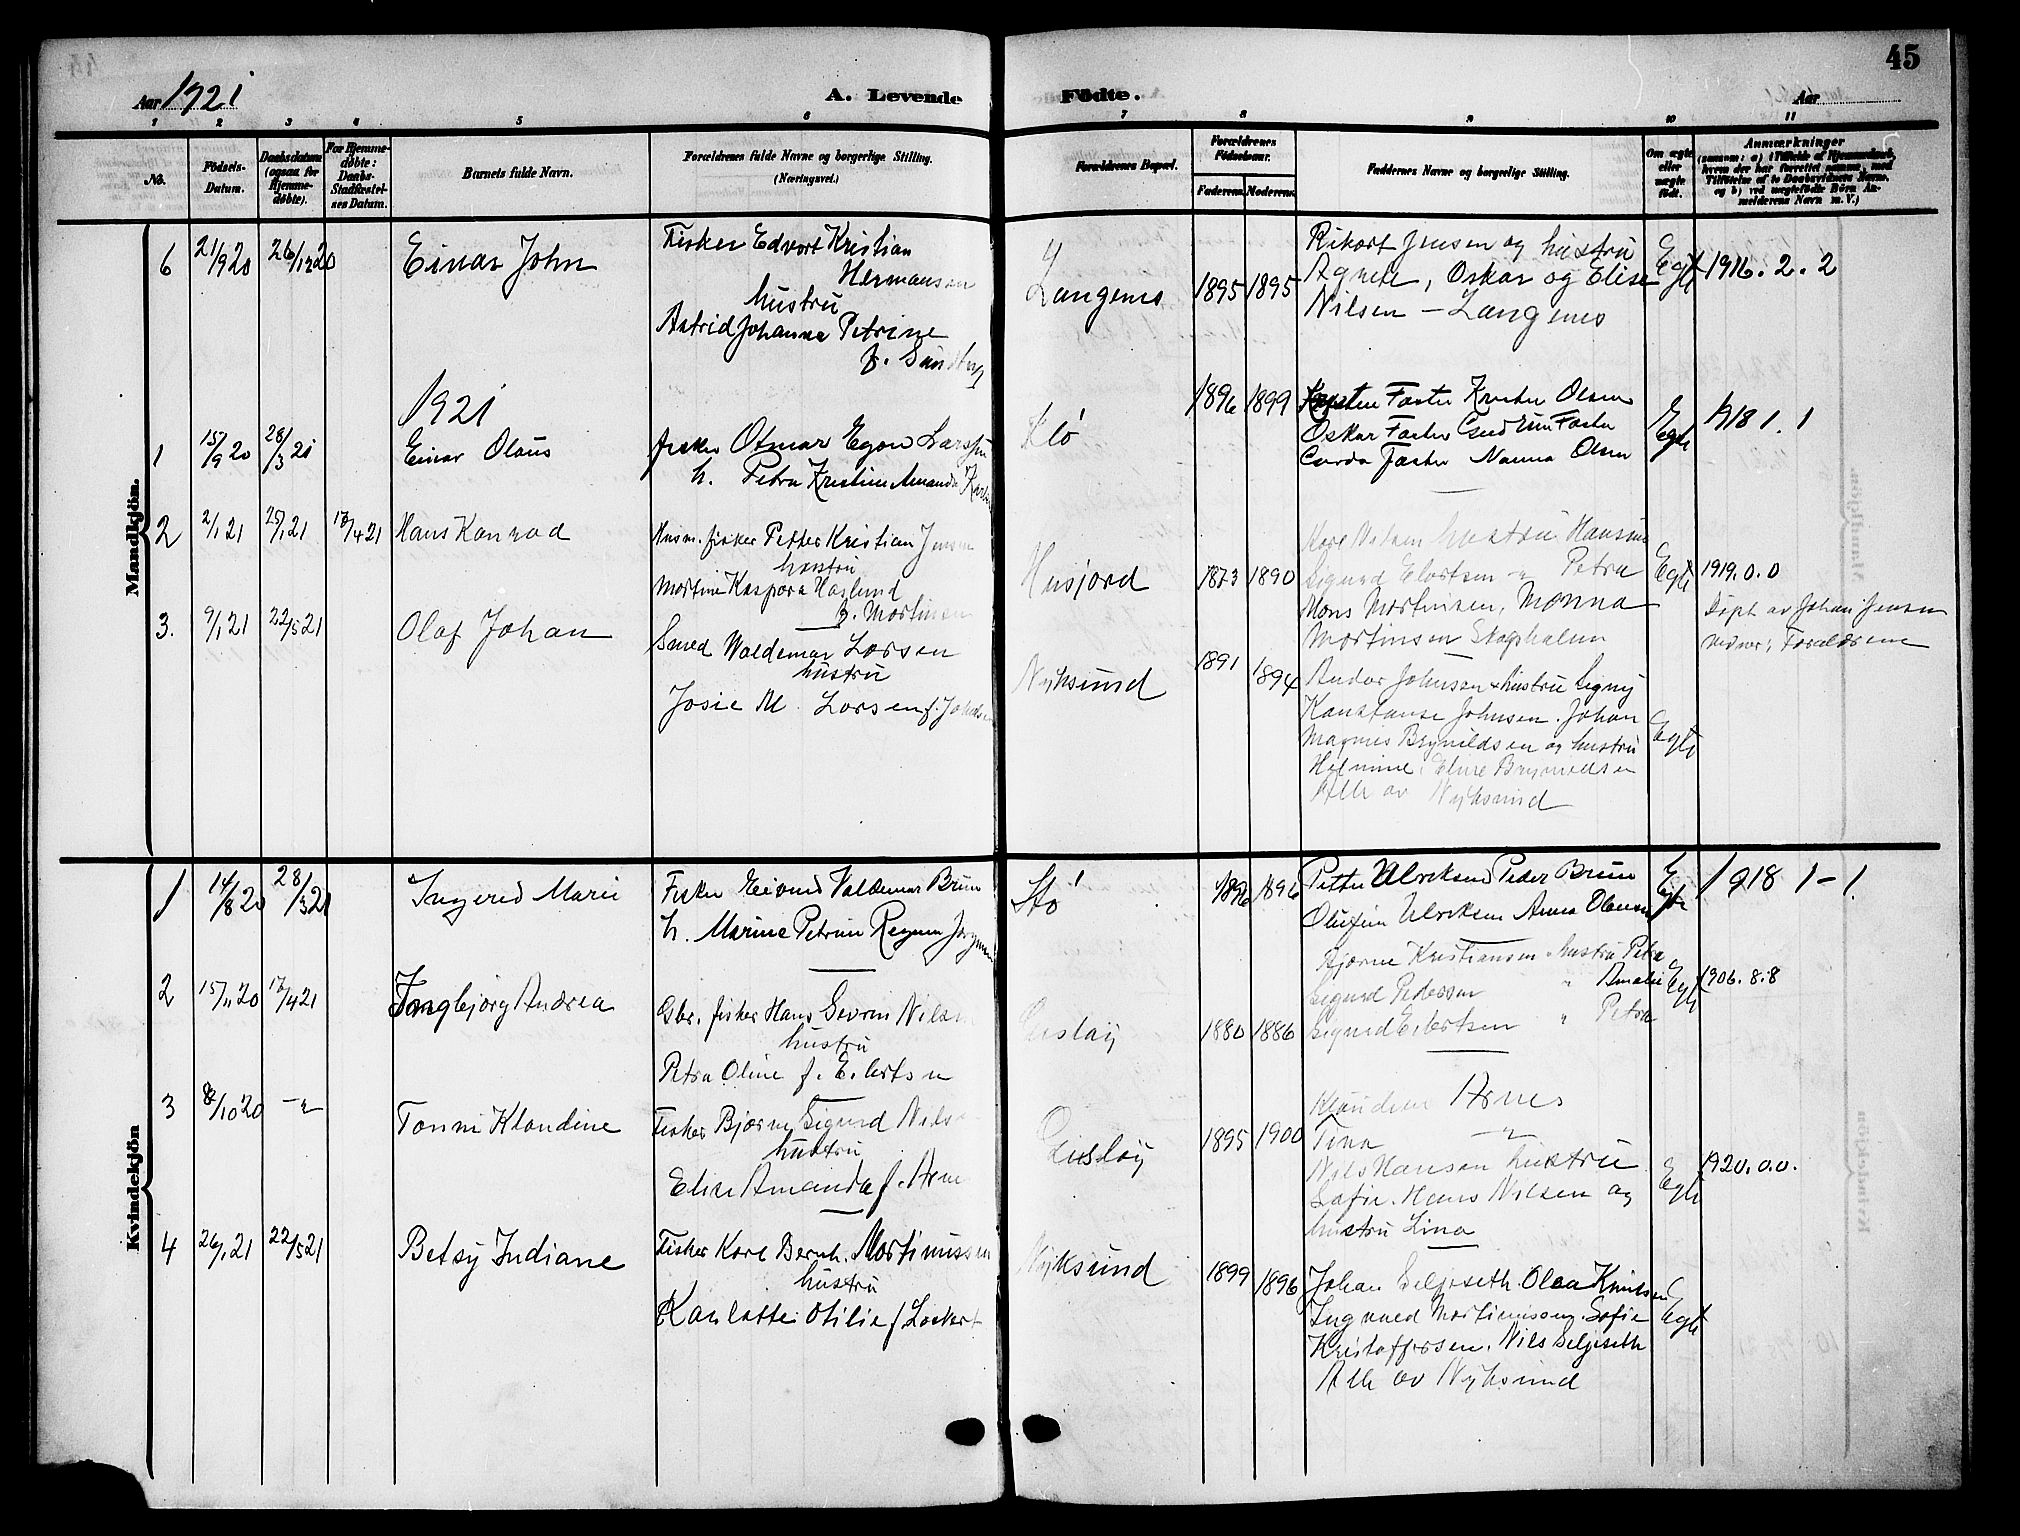 45
Aar 1921
A. Levende
Födte.
Aar
1 2 3 4 5 6 7 8 9 10 11
No.
Födsels-Datum.
Daabsdatum (ogsaa for Hjemmedöbte).
For Hjemmedöbte: Daabs-Stadfæstelses Datum.
Barnets fulde Navn.
Forældrenes fulde Navne og borgerlige Stilling.
(Næringsvei.)
Forældrenes Bopæl.
Forældrenes Födselsaar.
Faderens. Moderens.
Faddernes Navne og borgerlige Stilling.
Om ægte eller uægte födt.
Anmærkninger
Mandkjön.
6 21/9 20 26/12 20 Einar John
Fisker Edvart Kristian
Hermansen
hustru
Astrid Johanna Petrine
f. Sundby
Langenes 1895 1895
Rikart Jensen og hustru
Agnete, Oskar og Elise
Nilsen — Langenes
Egte 1916. 2. 2
1921
1 15/9 20 28/3 21 Einar Olaus
fisker Otmar Egon Larssen
h. Petra Kristine Amanda
Klo 1896 1899
Faster Olsen
Oskar Faster Gudrun Faster
Faster Nanna Olsen
Egte 1918 1. 1
2 2/1 21 25/1 21 17/4 21 Hans Konrad
Husm. fisker Petter Kristian Jensen
hustru
Martine Kaspara Haslund
f. Martinsen
Husjord 1873 1890
Kare Nilsen hustru Hansine
Sigurd Elartsen " Petra
Mons Martinsen, Monna
Martinsen Skogshalsen
Egte 1919. 0. 0
Döpt av Johan Jensen
Foreldrene
3. 9/1 21 22/5 21 Olaf Johan
Smed Waldemar Larsen
hustru
Josie M. Larsen f. Johnsen
Nyksund 1891 1894
Andor Johnsen & hustru Signy
Konstanse Johnsen. Johan
Magnus Brynildsen og hustru
Helmine. Brynildsen
Alle av Nyksund
Egte
Kvindekjön
1 14/8 20 28/3 21 Ingerid Marie
Fisker Eivind Valdemar Bruun
h. Marine Petrine
Stö 1896 1896
Petter Ulriksen Peder Bruun
Olufine Ulriksen Anna Olausen
Egte 1918 1–1.
2 15/11 20 17/4 21 Ingbjørg Andrea
Gbr. fisker Hans Sevrin Nilsen
hustru
Petra Oline f. Eilertsen
1880 1886
Bjarne Kristiansen & hustru Petra
Sigurd Pedersen " Amalie
Sigurd Eilertsen " Petra
Egte 1906. 8. 8
3 8/10 20 –"– Tonni Klaudine
Fisker Bjarne Sigurd Nilsen
hustru
Elise Amanda f. Arne
1895 1900
Klaudius Arnes
Tina –"–
Nils Hansen hustru
Sofie. Hans Nilsen og
hustru Lina
Egte 1920. 0. 0.
4 26/1 21 22/5 21 Betsy Indiane
Fisker Karl Bernh. Martinussen
hustru
Karlotte Otilie f. Lockert
Nyksund 1899 1896
Johan Seljeseth. Olaa Knutsen
Ingvald Martinussen. Sofie
Kristoffersen. Nils Seljeseth
Alle av Nyksund
Egte